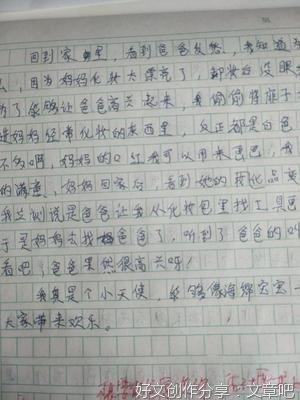 回到家里，看到爸爸发愁，我知道为
么，因为妈妈化妆太漂亮了，卸妆后没眼
为了能够让爸爸高兴起来，我偷偷将瓶子
是妈妈经常化妆的东西里，反正都是白色
不多啊，妈妈的口红我可以用来画画，我
的满意，妈妈回家后，看到她的化品菜
我立刻说是爸爸让我从化妆包里找工具
于是妈妈去找爸爸了，听到了爸爸的叫
看吧，爸爸果然很高兴呀！
我真是个小天使，能够像海绵宝宝一
大家带来欢乐。
好文创作分享：文章吧